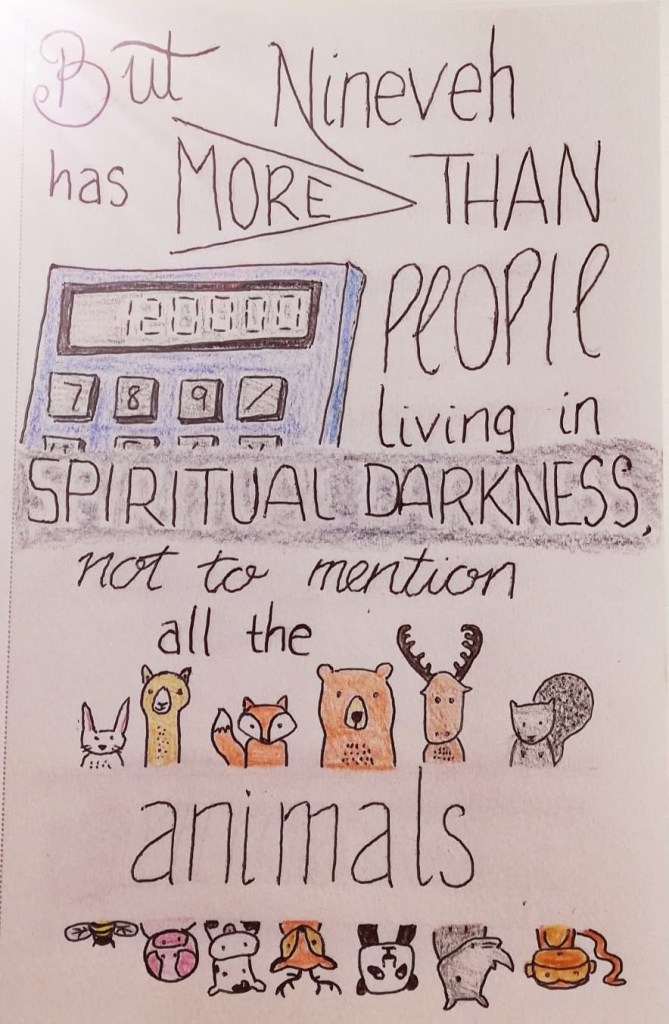 But Nineveh
has MORE THAN
120000 PEOPlE
7 8 9 /
living in
SPIRITUAL DARKNESS,
not to mention
all the
animals